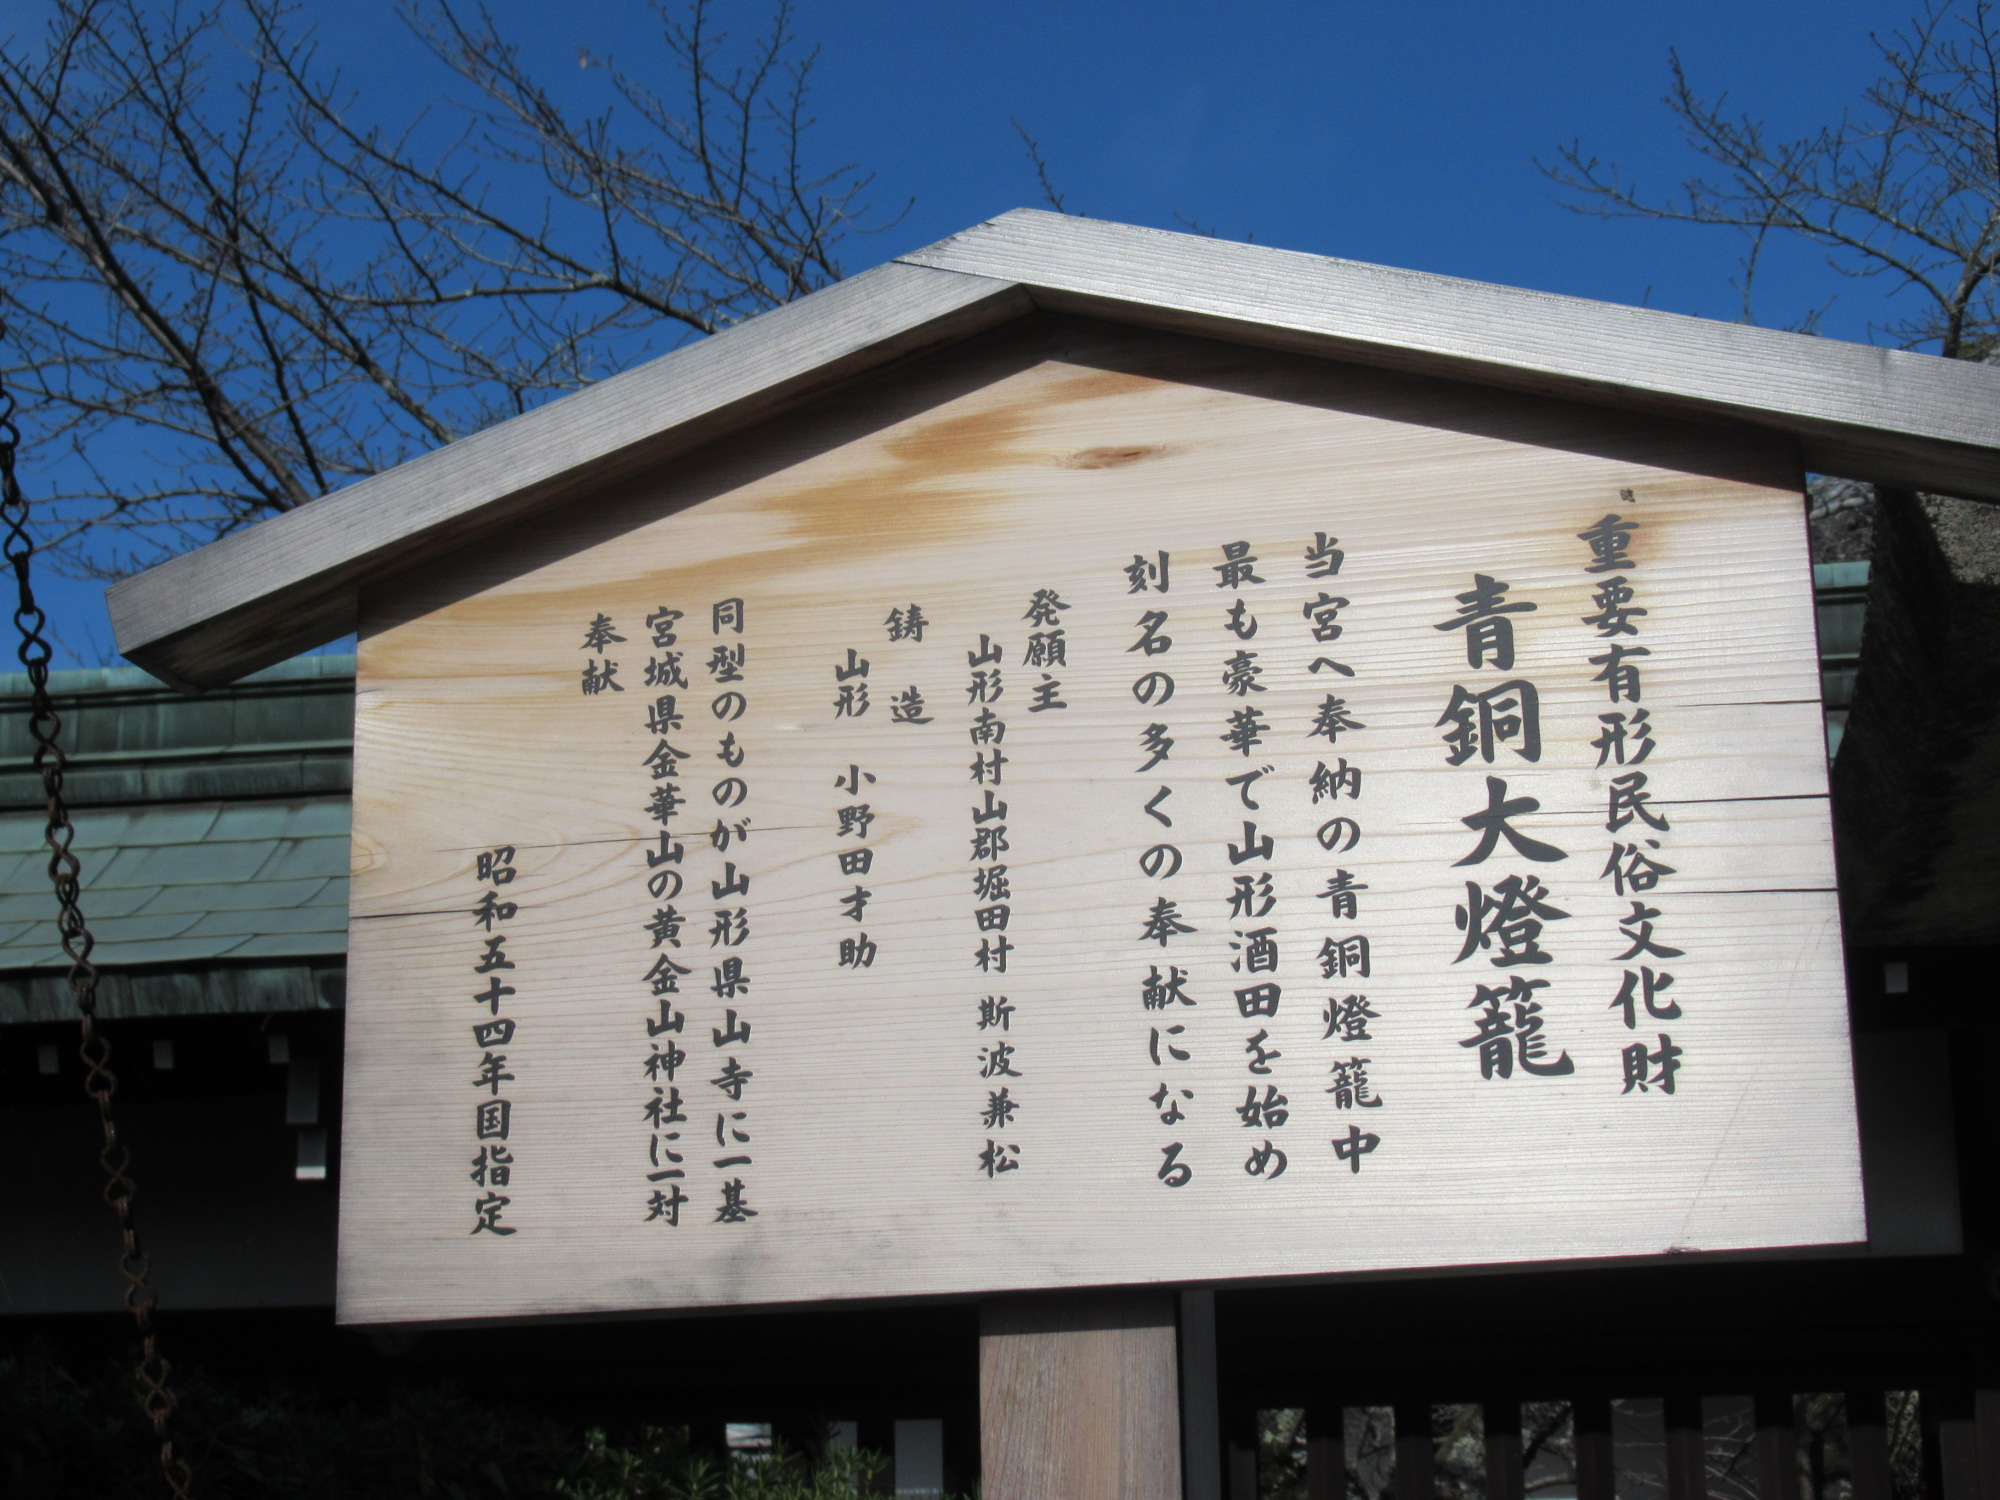 重要有形民俗文化財
青銅大燈籠
当宮へ奉納の青銅燈籠中
最も豪華で山形酒田を始め
刻名の多くの奉献になる
発願主
山形南村山郡堀田村 斯波兼松
鋳 造
山形 小野田才助
同型のものが山形県山寺に一基
宮城県金華山の黄金山神社に一対
奉献
昭和五十四年国指定